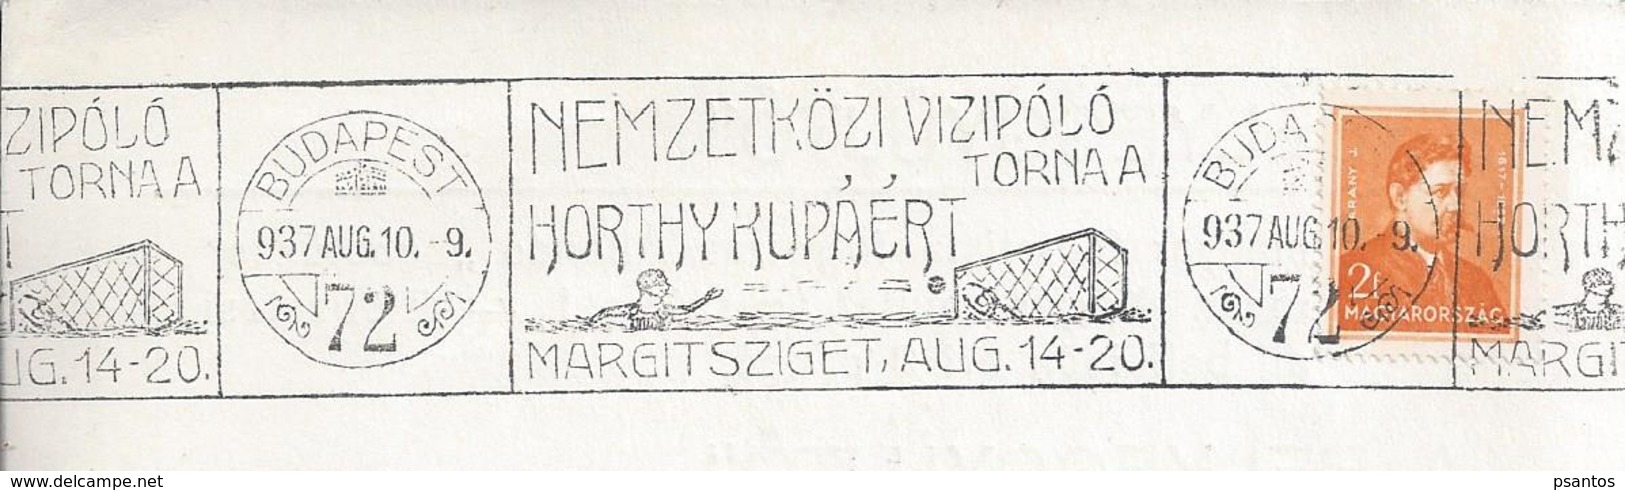 ZIPÓLÓ
TORNA A
UG. 14-20.
BUDAPEST
937 AUG. 10. -9.
72
NEMZETKÖZI VIZIPÓLÓ
TORNA A
HORTHY KUPÁÉRT
MARGITSZIGET, AUG. 14-20.
BUDA
937 AUG 10. 9.
72
ARANY J.
1817-
2f
MAGYARORSZÁG
NEMZ
HORTH
MARGIT
www.delcampe.net
psantos